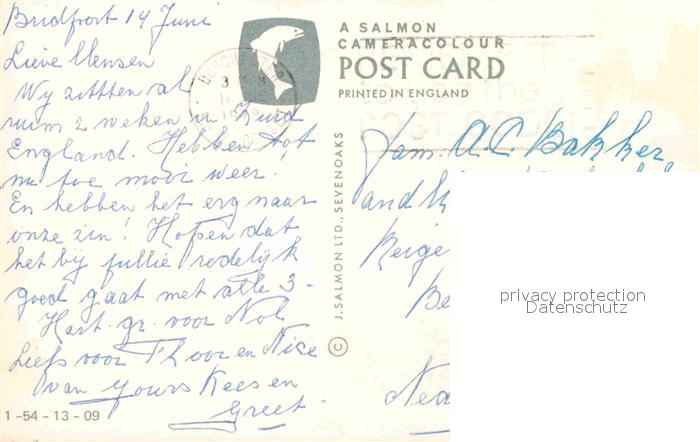 Bridfort 14 Juni
Lieve Mensen
Wy zitten al
ruim 2 weken in Zuid
England. Hebben tot
nu toe mooi weer.
En hebben het erg naar
onze zin! Hopen dat
het by jullie redelijk
goed gaat met alle 3-
Hart. gr. voor Nol
Liefs voor en
van Yours Kees en
Greet
1-54-13-09
A SALMON
CAMERACOLOUR
POST CARD
PRINTED IN ENGLAND
© J. SALMON LTD., SEVENOAKS
Fam. A.C. Bakker
privacy protection
Datenschutz